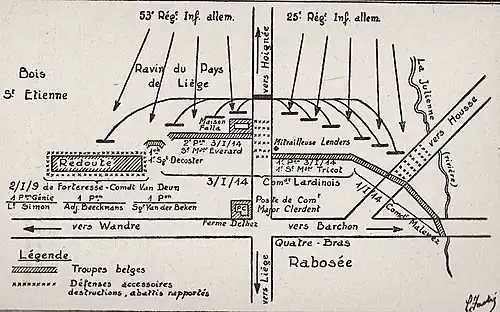 53e Régt. Inf. allem.
25e Régt. Inf. allem.
Bois
St Etienne
Ravin du Pays
de Liège
vers Hoignée
La Julienne
(rivière)
vers Housse
Maison
Falla
2e Pon 3/I/14
St Mtre Everard
Mitrailleuse Lenders
1er Sgt Decoster
Redoute
1e Pon 3/I/14
1r St Mtre Tricot
3/I/14
Comdt Lardinois
1/I/14
Comdt Malevez
2/I/9 de Forteresse - Comdt Van Deun
1 Pon Génie
1 Pon
1 Pon
Lt Simon
Adj. Beeckmans
Sgt Van der Beken
PC
Poste de Comt
Major Clerdent
Ferme Delhez
vers Wandre
vers Barchon
Quatre-Bras
Rabosée
vers Liège
Légende
Troupes belges
Défenses accessoires
destructions, abattis rapportés